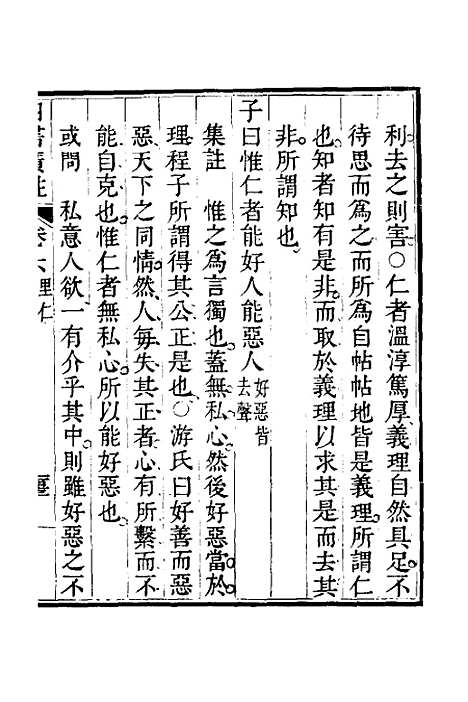 利去之則害○仁者溫淳篤厚義理自然具足不
待思而為之而所為自帖帖地皆是義理所謂仁
也知者知有是非而取於義理以求其是而去其
非所謂知也
子曰惟仁者能好人能惡人好惡皆去聲
集註　惟之為言獨也蓋無私心然後好惡當於
理程子所謂得其公正是也○游氏曰好善而惡
惡天下之同情然人每失其正者心有所繫而不
能自克也惟仁者無私心所以能好惡也
或問　私意人欲一有介乎其中則雖好惡之不
卷六里仁